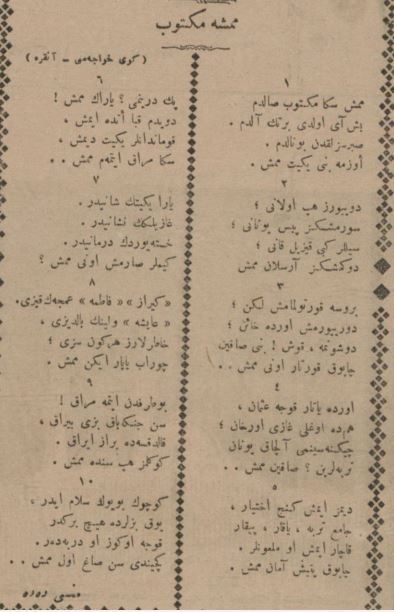 ممشه مكتوب
(كوی خواجه‌سی - آنقره)
١
ممش سكا مكتوب صالدم
بش آی اولدی برتك آلدم .
صبرسزلقدن بونالدم .
اوزمه بنی يكيت ممش .
٢
دويیورز هپ اولانی ؛
سورمشسكز پيس يونانی ؛
سيللر كبی قيزيل قانی ؛
دوكمشسكز آرسلان ممش
٣
بروسه قورتولمامش لكن ؛
دوریيورمش اورده خائن ؛
دوشونمه ، قوش ! بنی صاقين
چابوق قورتار اونی ممش . .
٤
اورده ياتار قوجه عثمان ،
هم ده اوغلی غازی اورخان ؛
چيكنه‌سينمی آلچاق يونان
تربه‌لرين ؟ صاقين ممش . .
٥
ديمز ايمش كنج اختيار ،
جامع تربه ، ياقار ، ييقار
قاچار ايمش او ملعونلر .
چابوق يتيش آمان ممش .
٦
پك درينمی ؟ ياراك ممش !
دويدم قبا أتده ايمش ،
قوماندانلر يكيت ديمش ،
سكا مراق ايتمم ممش . .
٧
يارا يكيتك شانيدر .
غازيلكك نشانيدر .
خسته‌يوردك درمانيدر .
كيملر صارمش اونی ممش ؟
٨
« كيراز » « فاطمه » عمجه‌ك قيزی .
« عايشه » واينك بالديزی ،
خاطرلارز هركون سزی ؛
چوراب ياپار ايكن ممش .
٩
بوطرفدن ايتمه مراق !
سن جنكه‌باق بزی بيراق ،
قالدقسه‌ده براز ايراق .
كوكلمز هپ سنده ممش .
١٠
كوچوك بويوك سلام ايدر ،
يوق بزلرده هيچ بركدر
قوجه اوكوز او دربه‌در .
كچيندی سن صاغ اول ممش . .